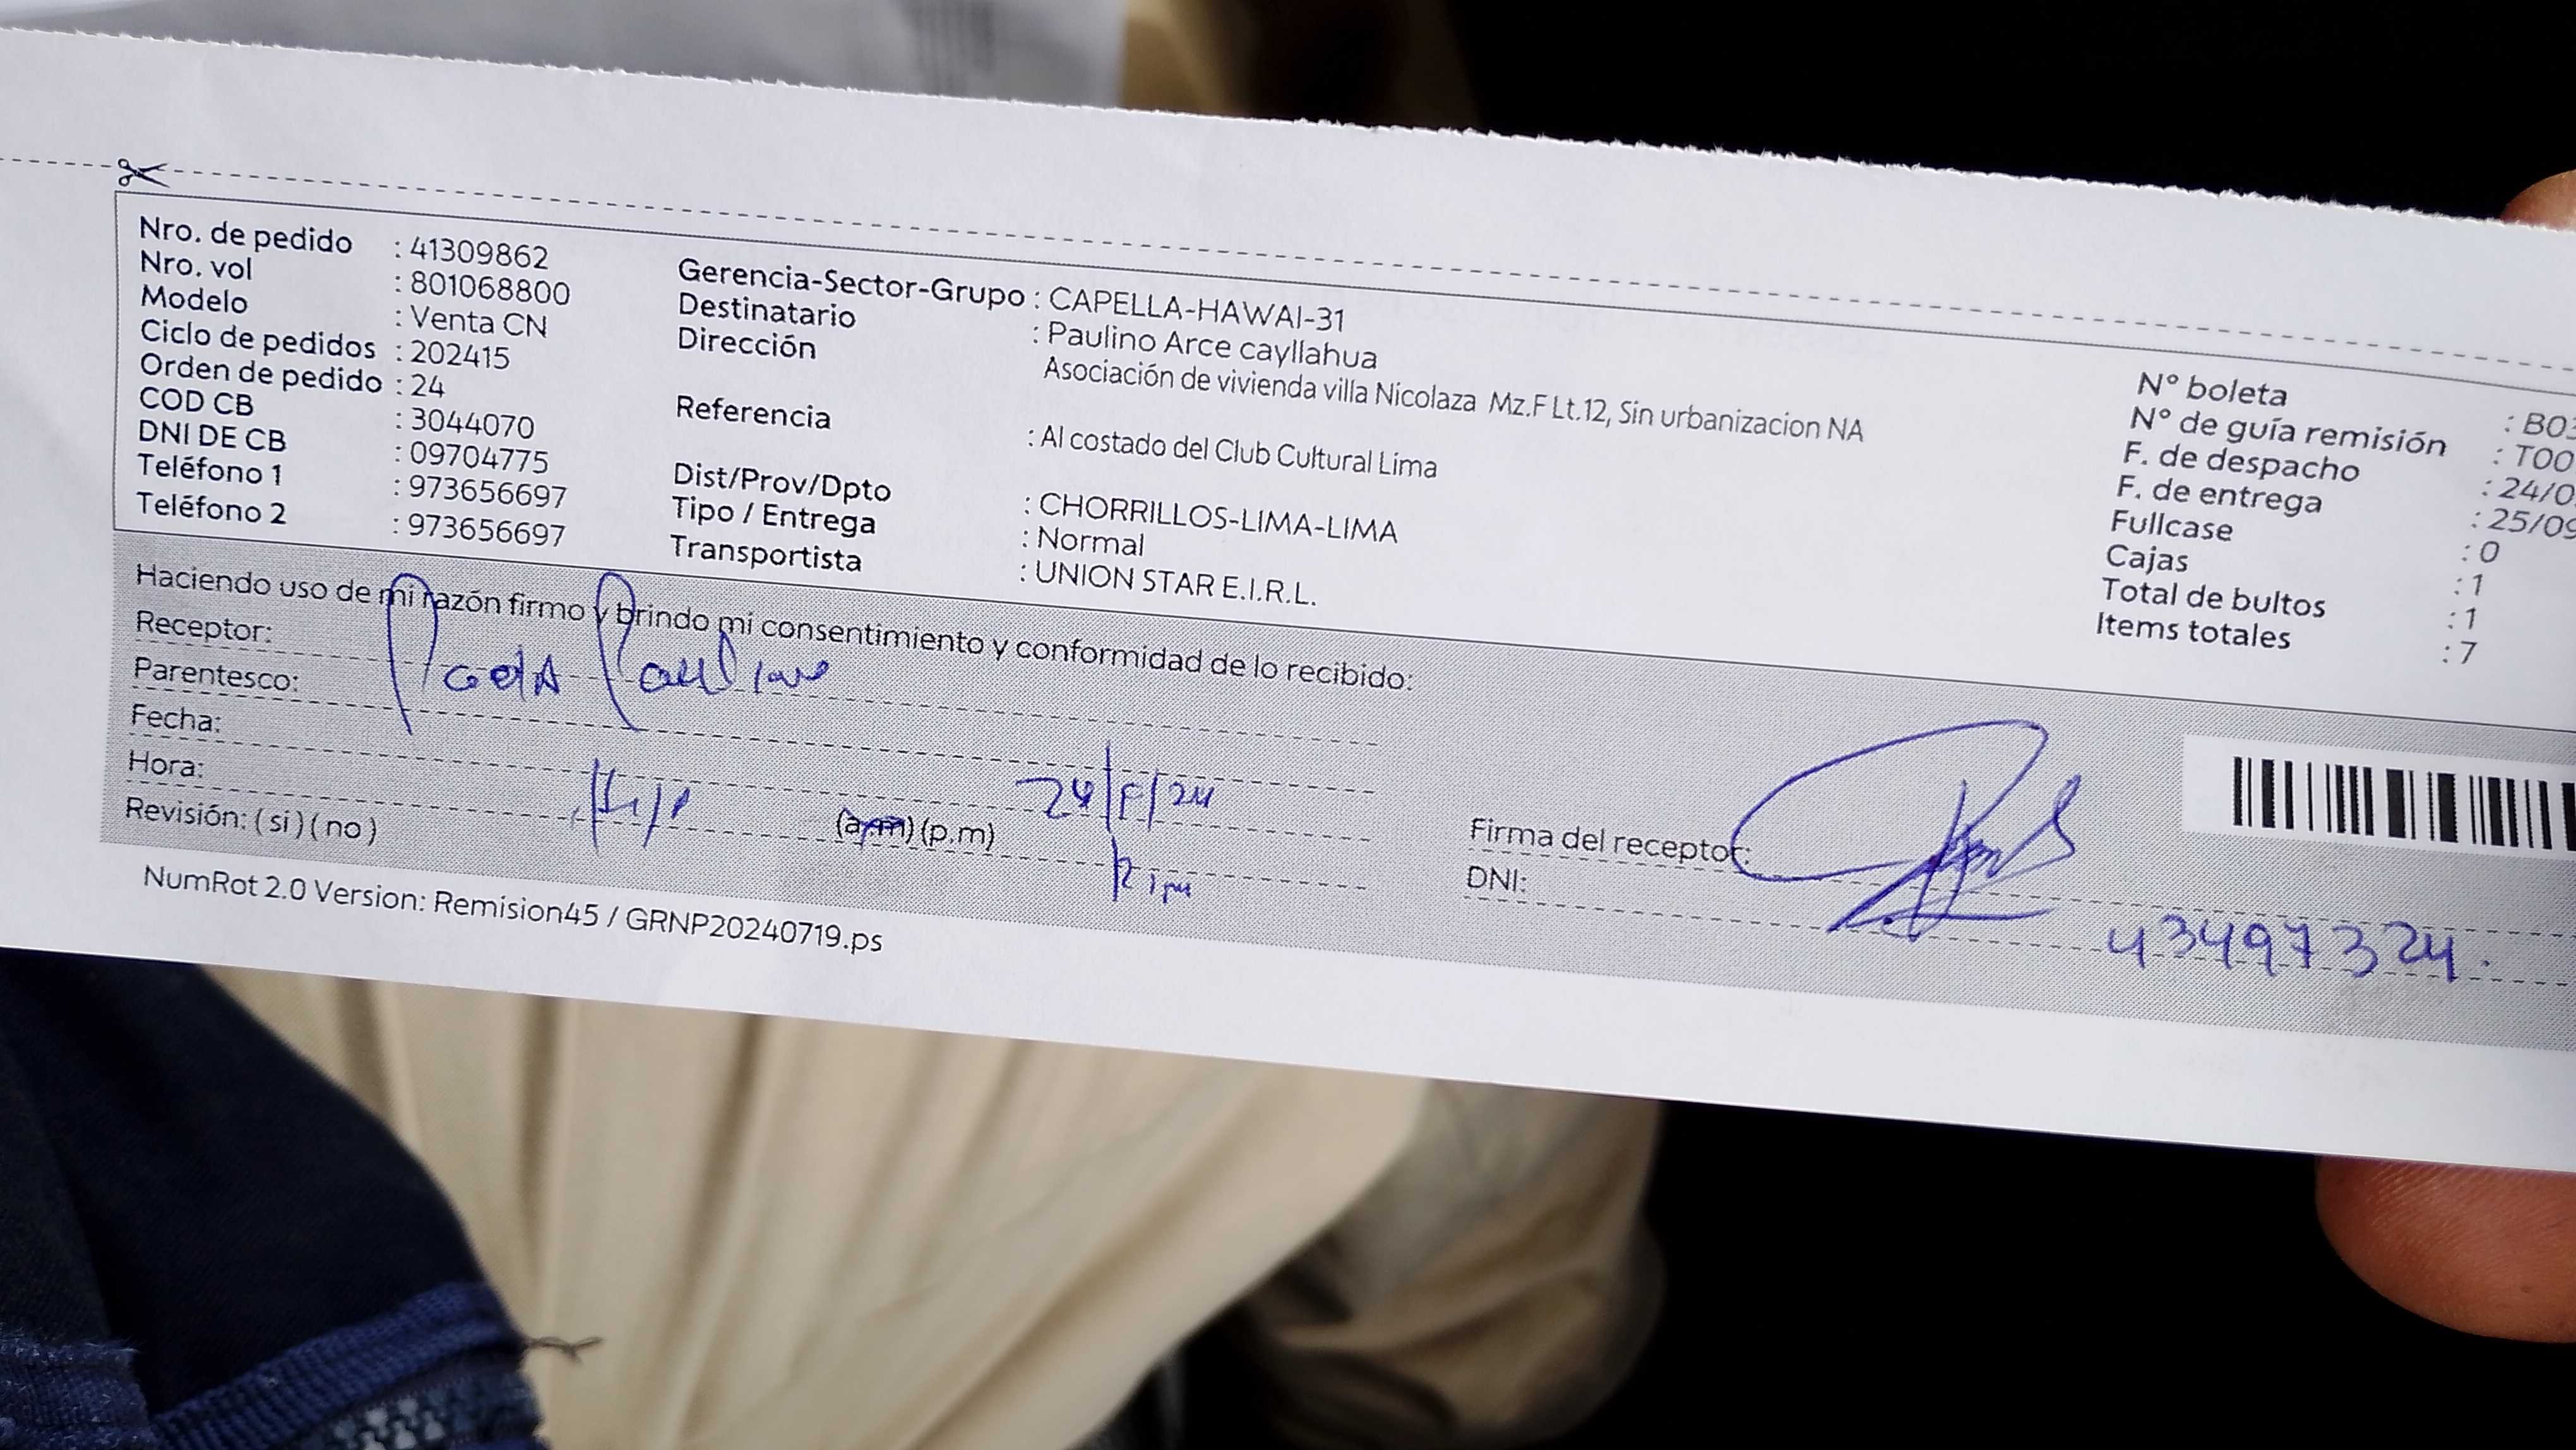 Nro. de pedido : 41309862
Nro. vol : 801068800
Modelo : Venta CN
Ciclo de pedidos : 202415
Orden de pedido : 24
COD CB : 3044070
DNI DE CB : 09704775
Teléfono 1 : 973656697
Teléfono 2 : 973656697
Gerencia-Sector-Grupo : CAPELLA-HAWAI-31
Destinatario : Paulino Arce cayllahua
Dirección Asociación de vivienda villa Nicolaza Mz.F Lt.12, Sin urbanizacion NA
Referencia : Al costado del Club Cultural Lima
Dist/Prov/Dpto : CHORRILLOS-LIMA-LIMA
Tipo / Entrega : Normal
Transportista : UNION STAR E.I.R.L.
N° boleta : B03
N° de guía remisión : T00
F. de despacho : 24/0
F. de entrega : 25/09
Fullcase : 0
Cajas : 1
Total de bultos : 1
Items totales : 7
Haciendo uso de mi razón firmo y brindo mi consentimiento y conformidad de lo recibido:
Receptor:
Parentesco:
Fecha:
Hora: (a.m) (p.m)
Revisión: ( si ) ( no )
Firma del receptor:
DNI: 43497324.
NumRot 2.0 Version: Remision45 / GRNP20240719.ps